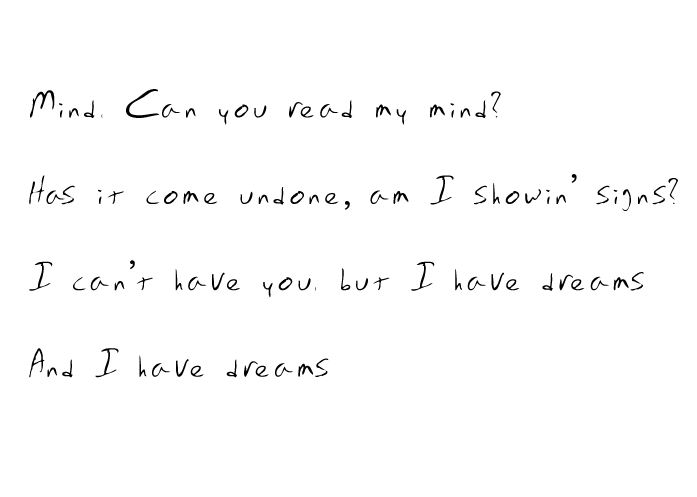 Mind. Can you read my mind?
Has it come undone, am I showin' signs?
I can't have you. but I have dreams
And I have dreams